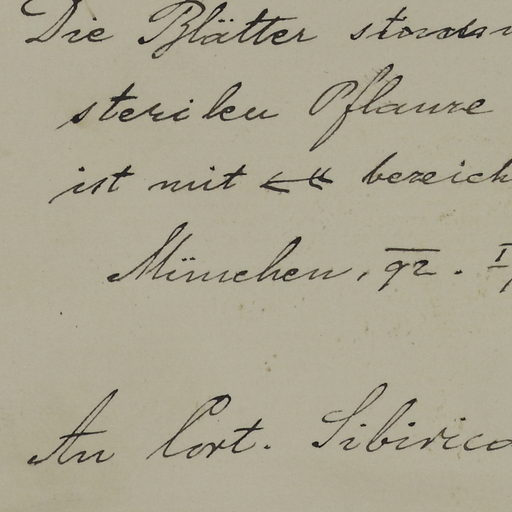 Die Blätter
sterilen Pflanze
ist mit bezeich
München, 92. I
An Cort. Sibirica